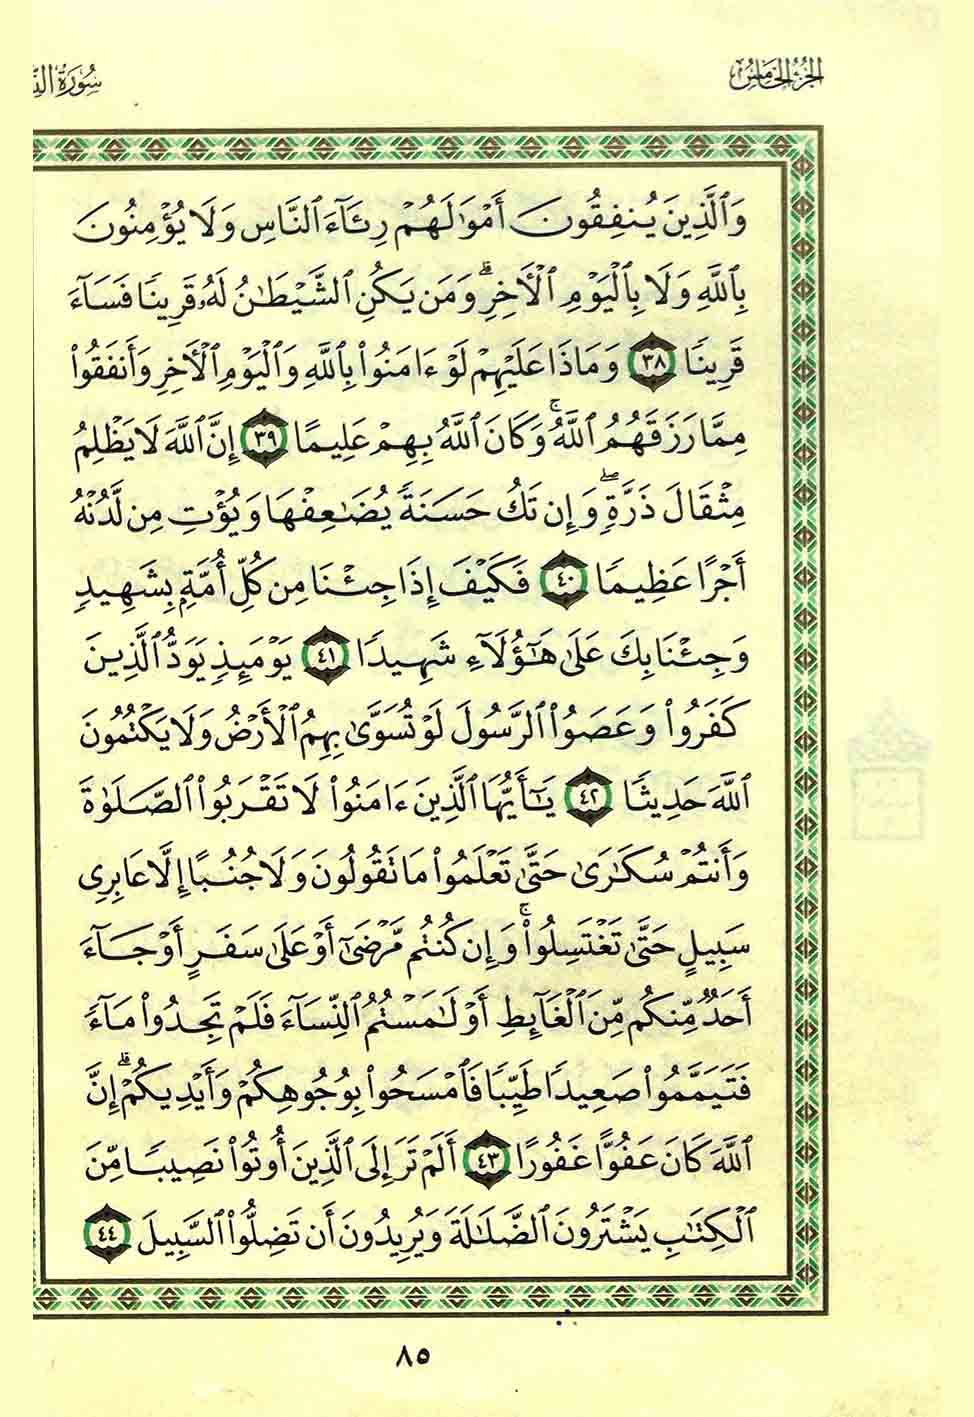 الجزء الخامس سورة
وَٱلَّذِينَ يُنفِقُونَ أَمْوَٰلَهُمْ رِئَآءَ ٱلنَّاسِ وَلَا يُؤْمِنُونَ
بِٱللَّهِ وَلَا بِٱلْيَوْمِ ٱلْأَخِرِ ۗ وَمَن يَكُنِ ٱلشَّيْطَٰنُ لَهُۥ قَرِينًا فَسَآءَ
قَرِينًا ٣٨ وَمَاذَا عَلَيْهِمْ لَوْ ءَامَنُوا۟ بِٱللَّهِ وَٱلْيَوْمِ ٱلْأَخِرِ وَأَنفَقُوا۟
مِمَّا رَزَقَهُمُ ٱللَّهُ ۚ وَكَانَ ٱللَّهُ بِهِمْ عَلِيمًا ٣٩ إِنَّ ٱللَّهَ لَا يَظْلِمُ
مِثْقَالَ ذَرَّةٍ ۖ وَإِن تَكُ حَسَنَةً يُضَٰعِفْهَا وَيُؤْتِ مِن لَّدُنْهُ
أَجْرًا عَظِيمًا ٤٠ فَكَيْفَ إِذَا جِئْنَا مِن كُلِّ أُمَّةٍۭ بِشَهِيدٍ
وَجِئْنَا بِكَ عَلَىٰ هَٰٓؤُلَآءِ شَهِيدًا ٤١ يَوْمَئِذٍ يَوَدُّ ٱلَّذِينَ
كَفَرُوا۟ وَعَصَوُا۟ ٱلرَّسُولَ لَوْ تُسَوَّىٰ بِهِمُ ٱلْأَرْضُ وَلَا يَكْتُمُونَ
ٱللَّهَ حَدِيثًا ٤٢ يَٰٓأَيُّهَا ٱلَّذِينَ ءَامَنُوا۟ لَا تَقْرَبُوا۟ ٱلصَّلَوٰةَ
وَأَنتُمْ سُكَٰرَىٰ حَتَّىٰ تَعْلَمُوا۟ مَا تَقُولُونَ وَلَا جُنُبًا إِلَّا عَابِرِى
سَبِيلٍ حَتَّىٰ تَغْتَسِلُوا۟ ۚ وَإِن كُنتُم مَّرْضَىٰٓ أَوْ عَلَىٰ سَفَرٍ أَوْ جَآءَ
أَحَدٌ مِّنكُم مِّنَ ٱلْغَآئِطِ أَوْ لَٰمَسْتُمُ ٱلنِّسَآءَ فَلَمْ تَجِدُوا۟ مَآءً
فَتَيَمَّمُوا۟ صَعِيدًا طَيِّبًا فَٱمْسَحُوا۟ بِوُجُوهِكُمْ وَأَيْدِيكُمْ ۗ إِنَّ
ٱللَّهَ كَانَ عَفُوًّا غَفُورًا ٤٣ أَلَمْ تَرَ إِلَى ٱلَّذِينَ أُوتُوا۟ نَصِيبًا مِّنَ
ٱلْكِتَٰبِ يَشْتَرُونَ ٱلضَّلَٰلَةَ وَيُرِيدُونَ أَن تَضِلُّوا۟ ٱلسَّبِيلَ ٤٤
٨٥